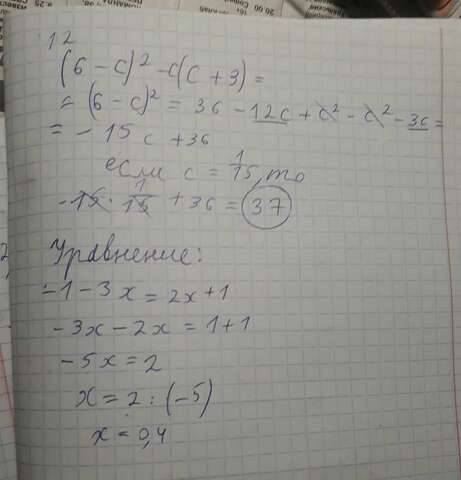 12
(6 - c)² - c(c + 3) =
= (6 - c)² = 36 - 12c + c² - c² - 3c =
= - 15c + 36
если c = 1/15, то
- 15 · 1/15 + 36 = 37
Уравнение:
-1 - 3x = 2x + 1
- 3x - 2x = 1 + 1
- 5x = 2
x = 2 : (-5)
x = 0,4